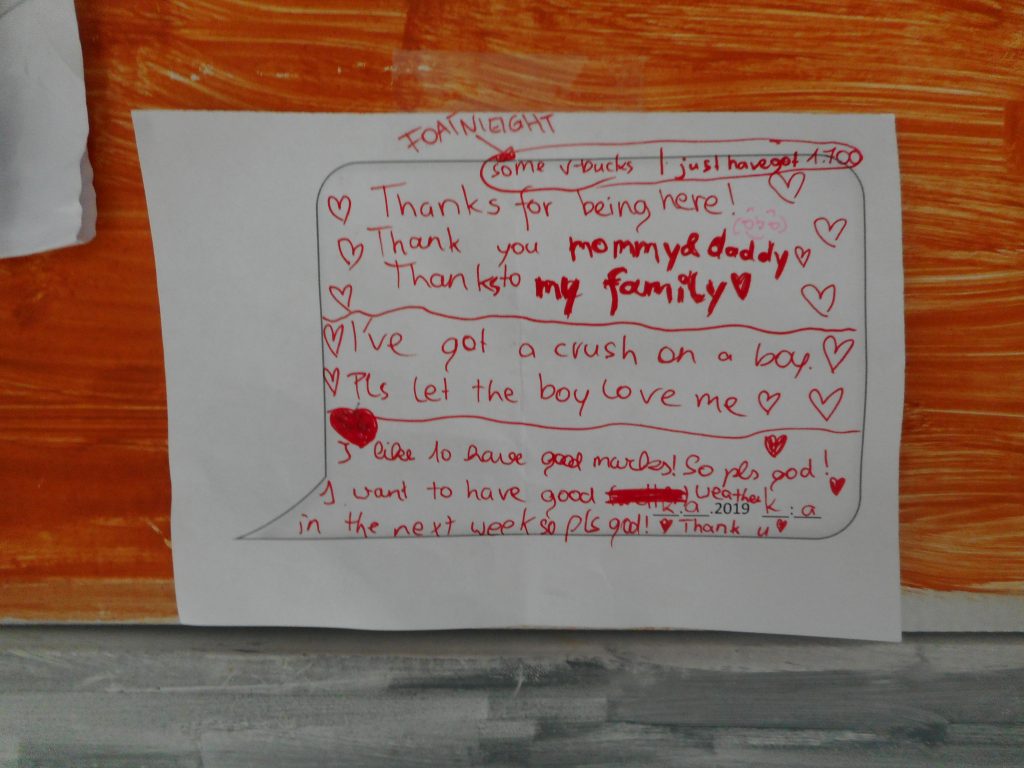 FOATNIEIGHT
some v-bucks I just have got 1.700
Thanks for being here!
Thank you mommy & daddy
Thanks to my family
I've got a crush on a boy.
Pls let the boy love me
I like to have good marks! So pls god!
I want to have good weather
k.a.2019 k:a
in the next week so pls god! Thank u